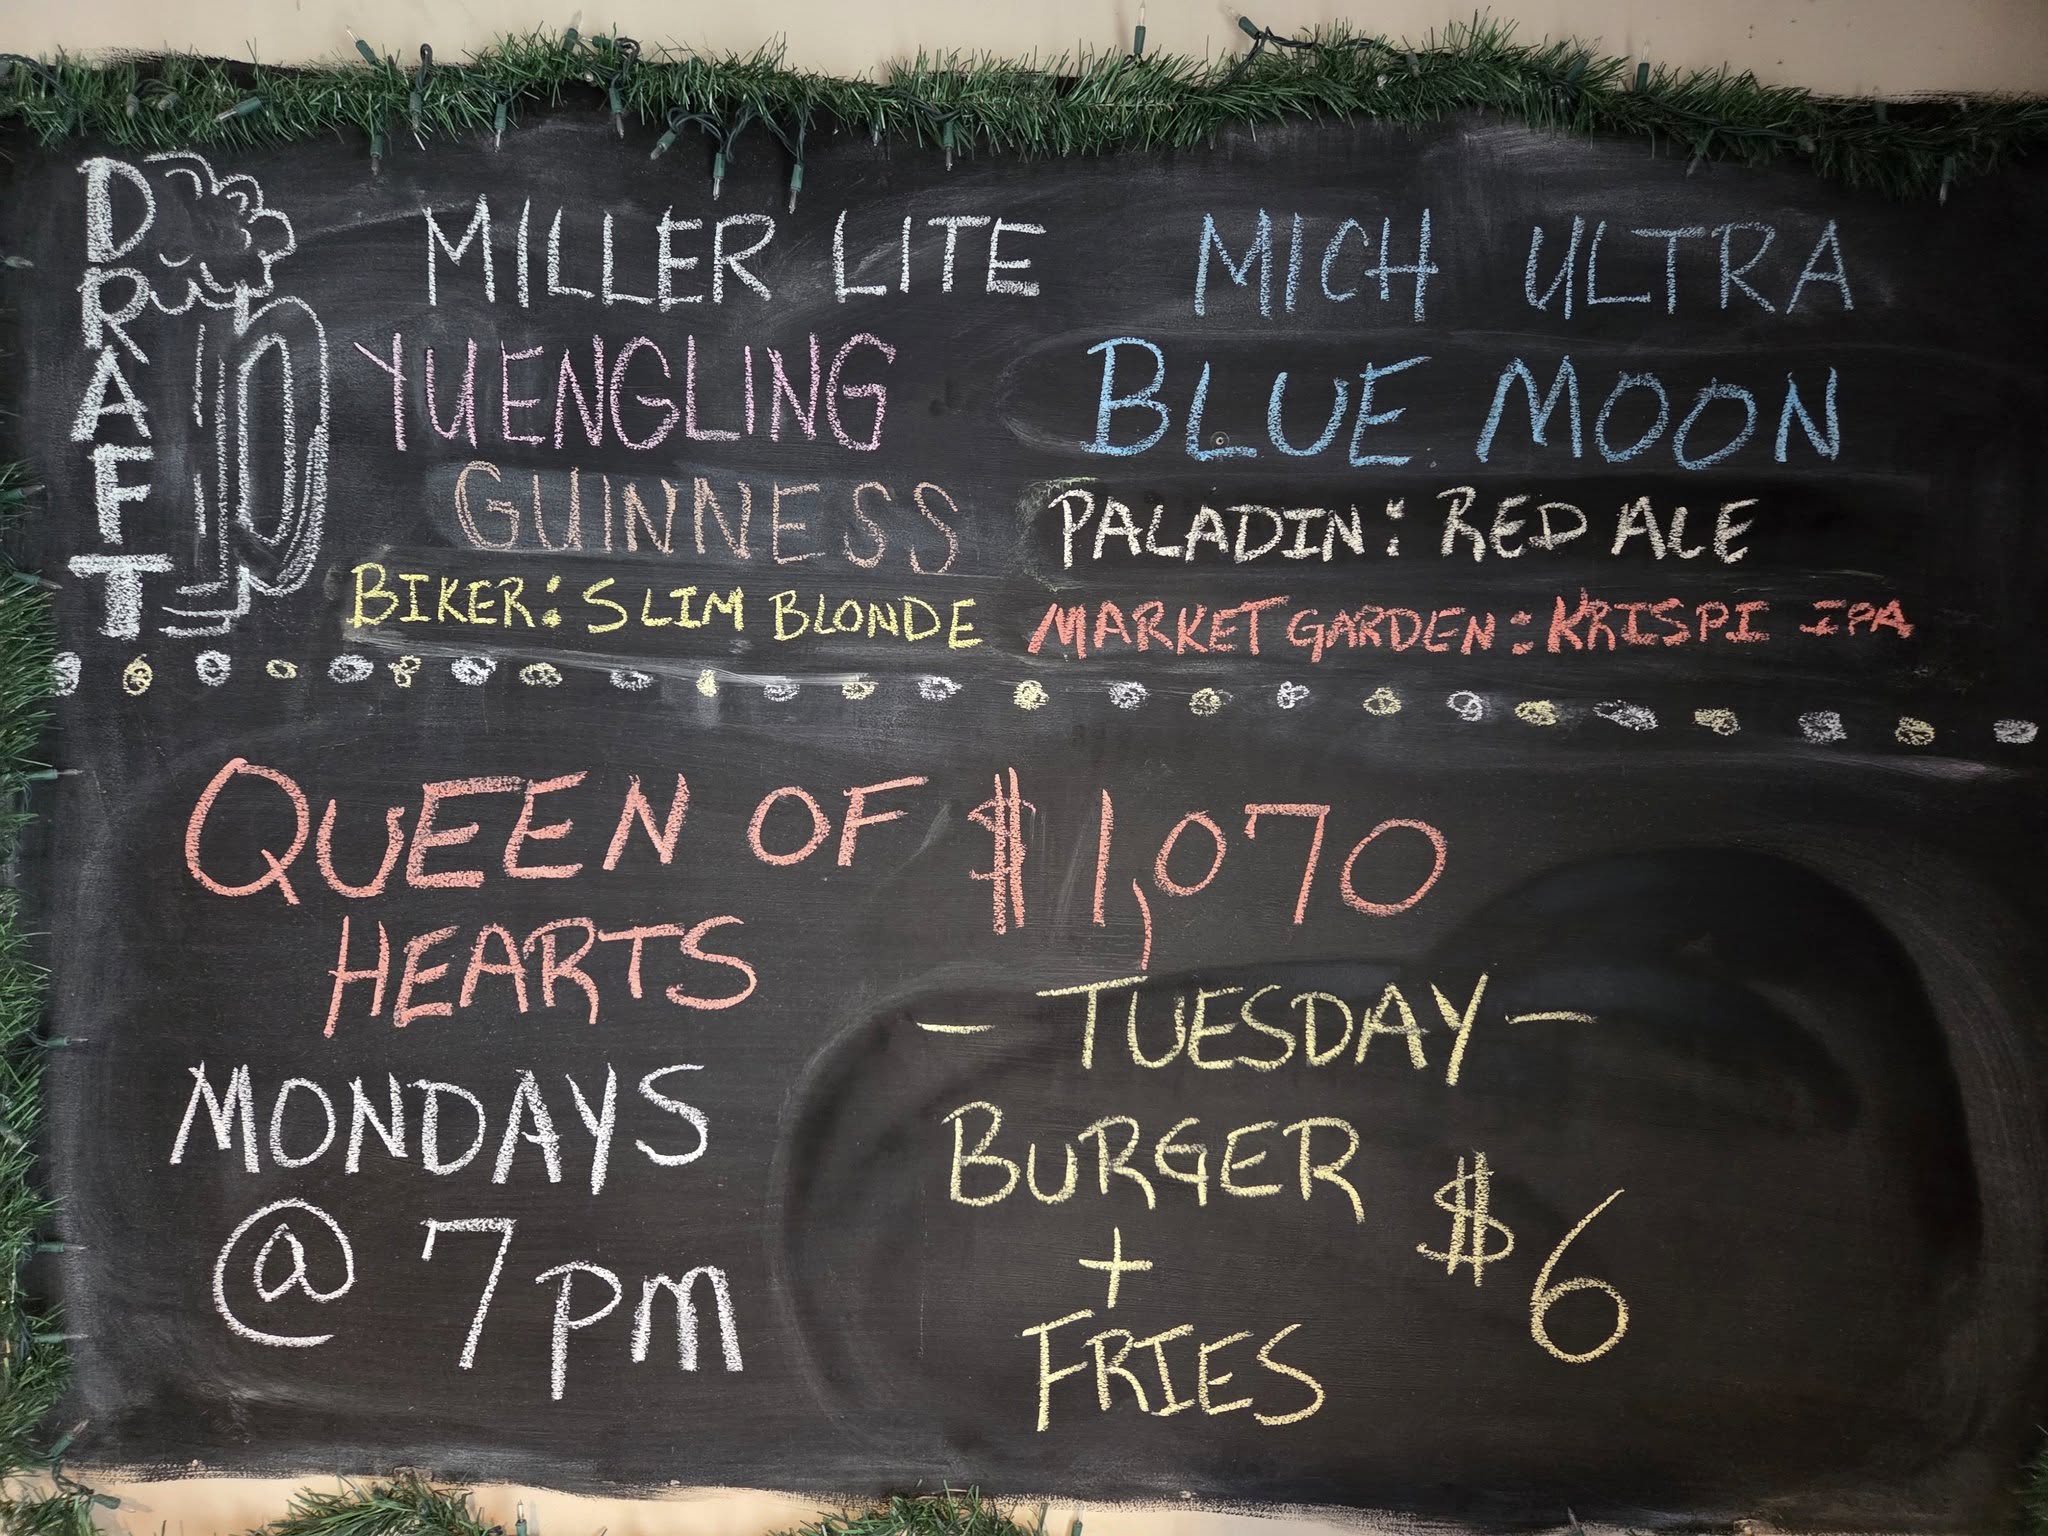 DRAFT
MILLER LITE MICH ULTRA
YUENGLING BLUE MOON
GUINNESS PALADIN: RED ALE
BIKER: SLIM BLONDE MARKET GARDEN: KRISPI IPA
QUEEN OF $1,070
HEARTS
MONDAYS
@ 7pm
- TUESDAY -
BURGER $6
+
FRIES